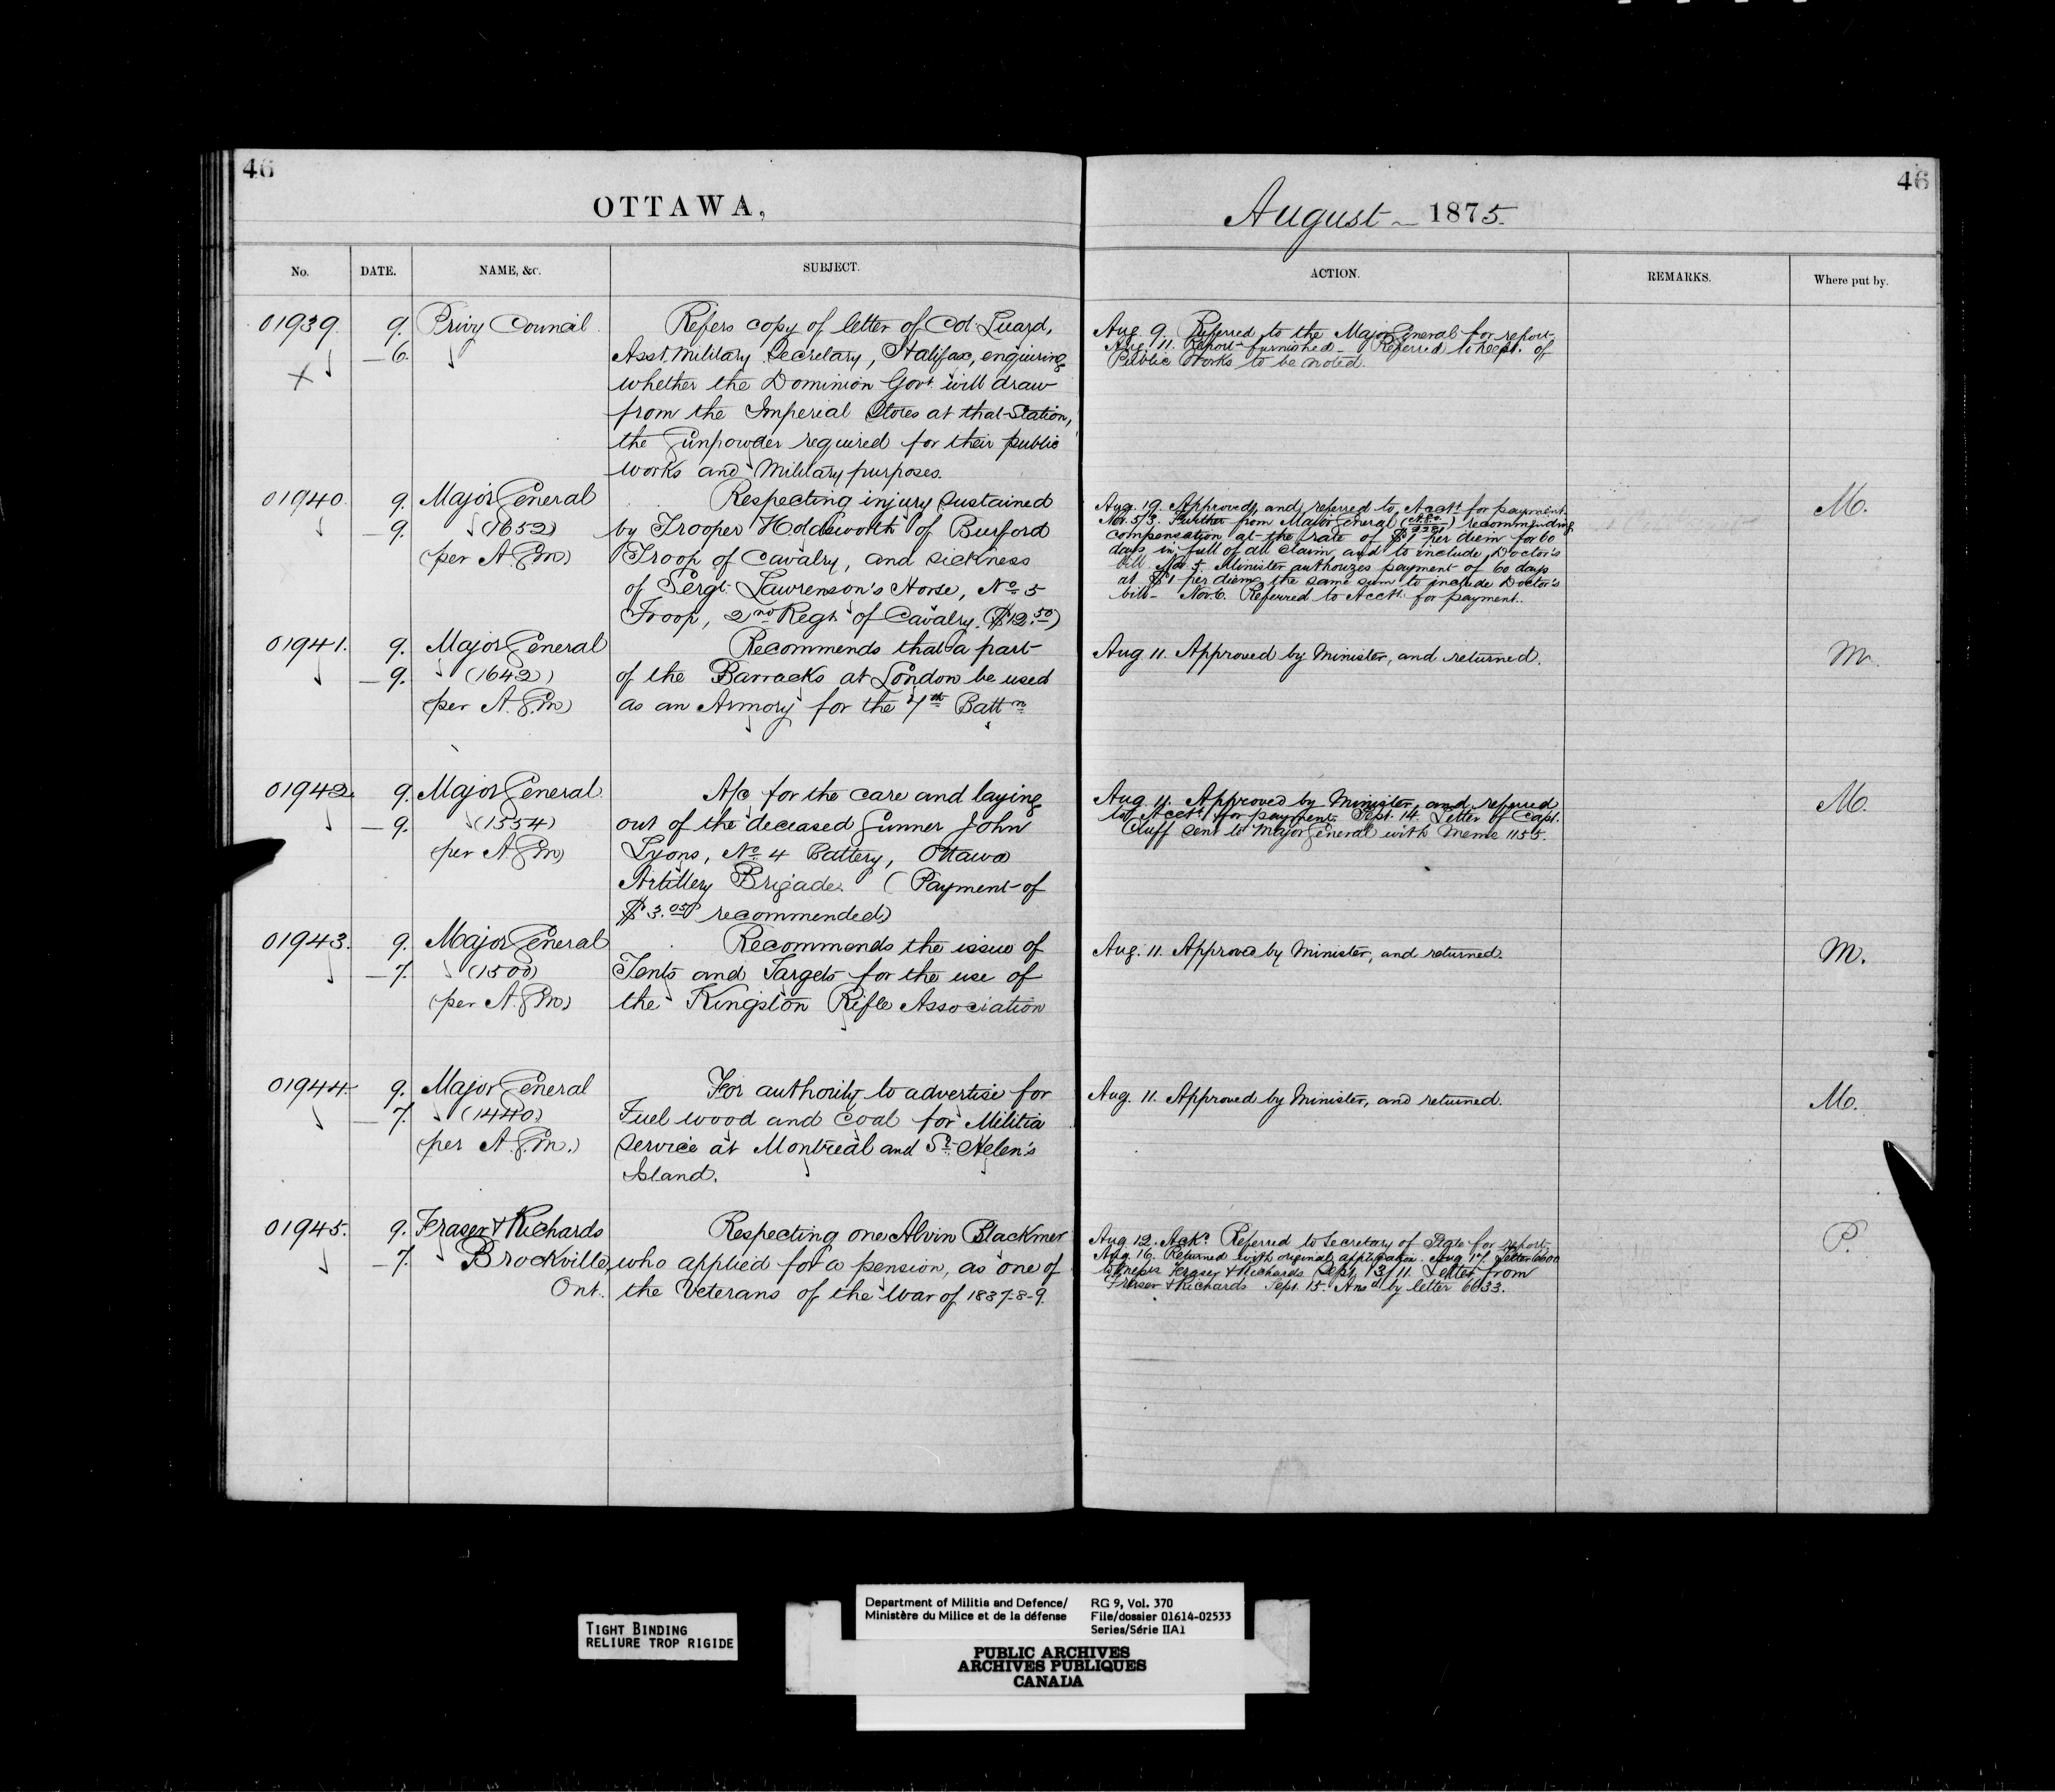 46
OTTAWA,
No.
DATE.
NAME, &c.
SUBJECT.
01939.
9.
Privy Council
Refers copy of letter of Col. Luard,
6.
Asst. Military Secretary, Halifax, enquiring
whether the Dominion Govt. will draw
from the Imperial Stores at that Station,
the Gunpowder required for their public
works and Military purposes.
01940.
9.
Major General
Respecting injury sustained
9.
(1652)
by Trooper Holdsworth of Burford
(per A.G.M)
Troop of Cavalry, and sickness
of Sergt. Lawrenson's Horse, No. 5
Troop, 2nd Regt. of Cavalry. ($12.50)
01941.
9.
Major General
Recommends that a part
9.
(1642)
of the Barracks at London be used
(per A.G.M)
as an Armory for the 7th Battn
01942.
9.
Major General
A/c for the care and laying
9.
(1554)
out of the deceased Gunner John
(per A.G.M)
Lyons, No. 4 Battery, Ottawa
Artillery Brigade. (Payment of
$3.05 recommended)
01943.
9.
Major General
Recommends the issue of
7.
(1500)
Tents and Targets for the use of
(per A.G.M)
the Kingston Rifle Association
01944.
9.
Major General
For authority to advertise for
7.
(1440)
Fuel wood and Coal for Militia
(per A.G.M.)
service at Montreal and St. Helen's
Island.
01945.
9.
Fraser & Richards
Respecting one Alvin Blackmer
7.
Brockville,
who applied for a pension, as one of
Ont.
the Veterans of the War of 1837-8-9.
46
August 1875.
ACTION.
REMARKS.
Where put by.
Aug. 9. Referred to the Major General for report.
Aug. 11. Report furnished - Referred to Dept. of
Public Works to be noted.
Aug. 19. Approved, and referred to Acct. for payment.
M.
Nov. 5/3. Further from Major General recommending
compensation at the rate of $1 per diem for 60
days in full of all claim, and to include Doctor's
bill. Nov. 5. Minister authorizes payment of 60 days
at $1 per diem, the same sum to include Doctor's
bill - Nov. 6. Referred to Acct. for payment.
Aug 11. Approved by Minister, and returned.
M
Aug 11. Approved by Minister, and referred
M.
to Acct. for payment. Sept. 14. Letter of Capt.
Cluff sent to Major General with Memo 1155.
Aug. 11. Approved by Minister, and returned.
M.
Aug. 11. Approved by Minister, and returned.
M.
Aug 12. Ackd. Referred to Secretary of State for report.
P.
Aug. 16. Returned with original application. Aug 17 Letter 6600
to Messrs Fraser & Richards Sept. 13/11. Letter from
Fraser & Richards Sept. 15. Ansd by letter 6633.
TIGHT BINDING
RELIURE TROP RIGIDE
Department of Militia and Defence/
Ministère du Milice et de la défense
RG 9, Vol. 370
File/dossier 01614-02533
Series/Série IIA1
PUBLIC ARCHIVES
ARCHIVES PUBLIQUES
CANADA